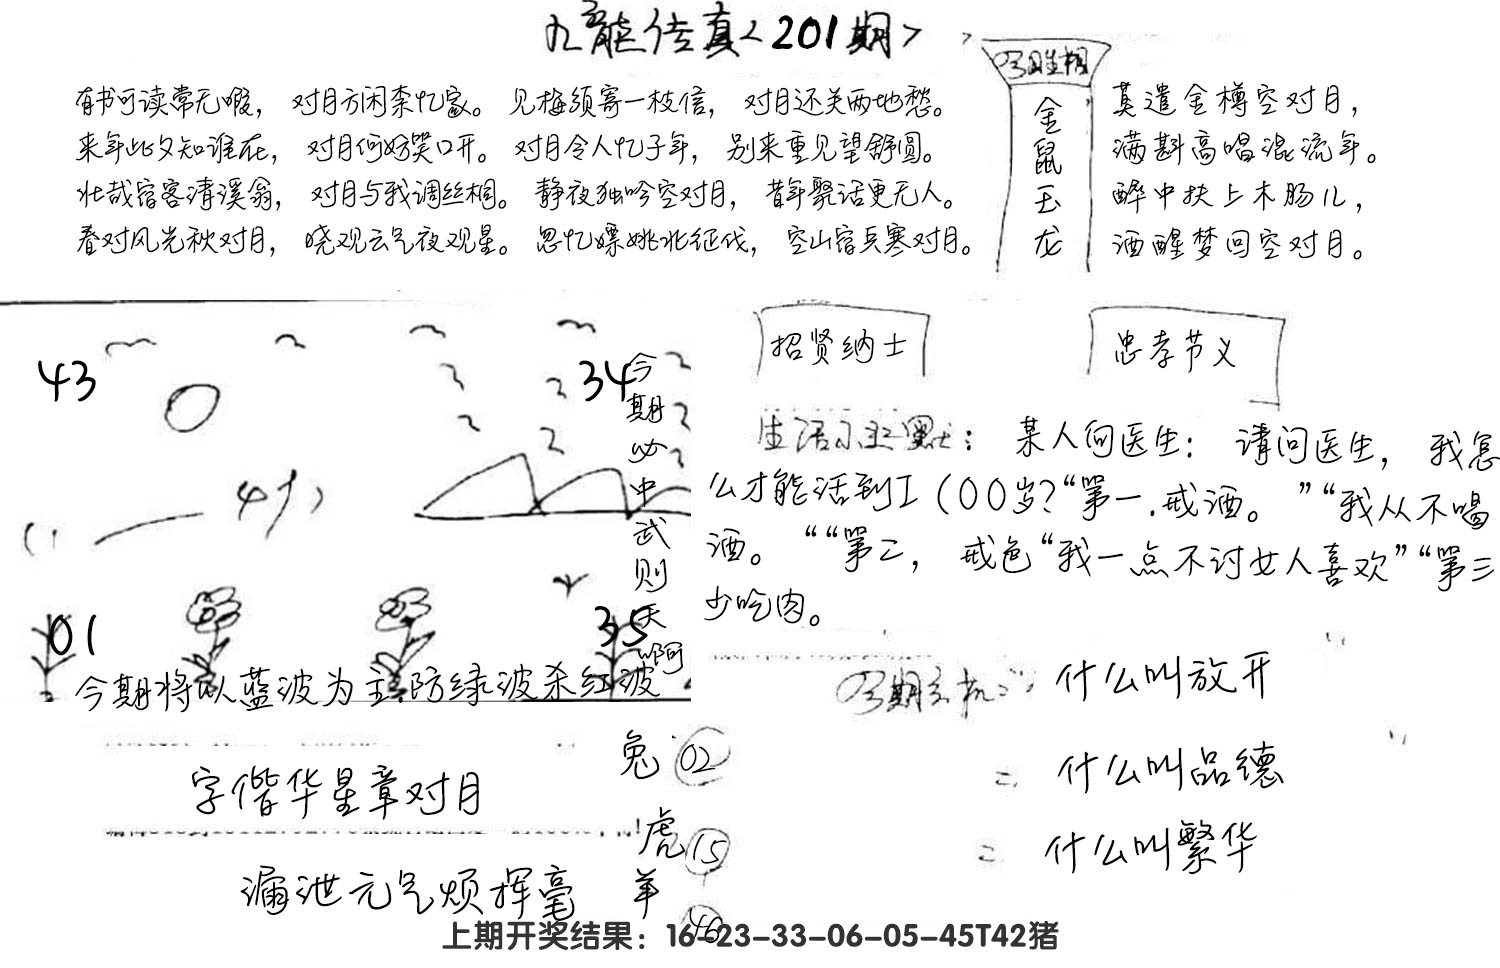 九龙传真<201期>
有书可读常无暇，对月方闲柰忆家。见梅须寄一枝信，对月还关两地愁。
来年此夕知谁在，对月何妨笑口开。对月令人忆子年，别来重见望舒圆。
壮哉宿客清溪翁，对月与我调丝桐。静夜独吟空对月，昔年聚话更无人。
春对风光秋对月，晓观云气夜观星。思忆嫖姚北征伐，空山宿兵寒对月。
今期生相
金鼠玉龙
莫遣金樽空对月，
满斟高唱混流年。
醉中扶上木肠儿，
酒醒梦回空对月。
43
34
01
35
今期必中武则天啊
今期将以蓝波为主防绿波杀红波
招贤纳士
忠孝节义
生活小幽默：某人问医生：请问医生，我怎
么才能活到I(00岁?“第一.戒酒。”“我从不喝
酒。““第二，戒色“我一点不讨女人喜欢”“第三
少吃肉。
今期玄机
什么叫放开
什么叫品德
什么叫繁华
字偕华星章对月
漏泄元气烦挥毫
兔 02
虎 15
羊 46
上期开奖结果：16-23-33-06-05-45T42猪